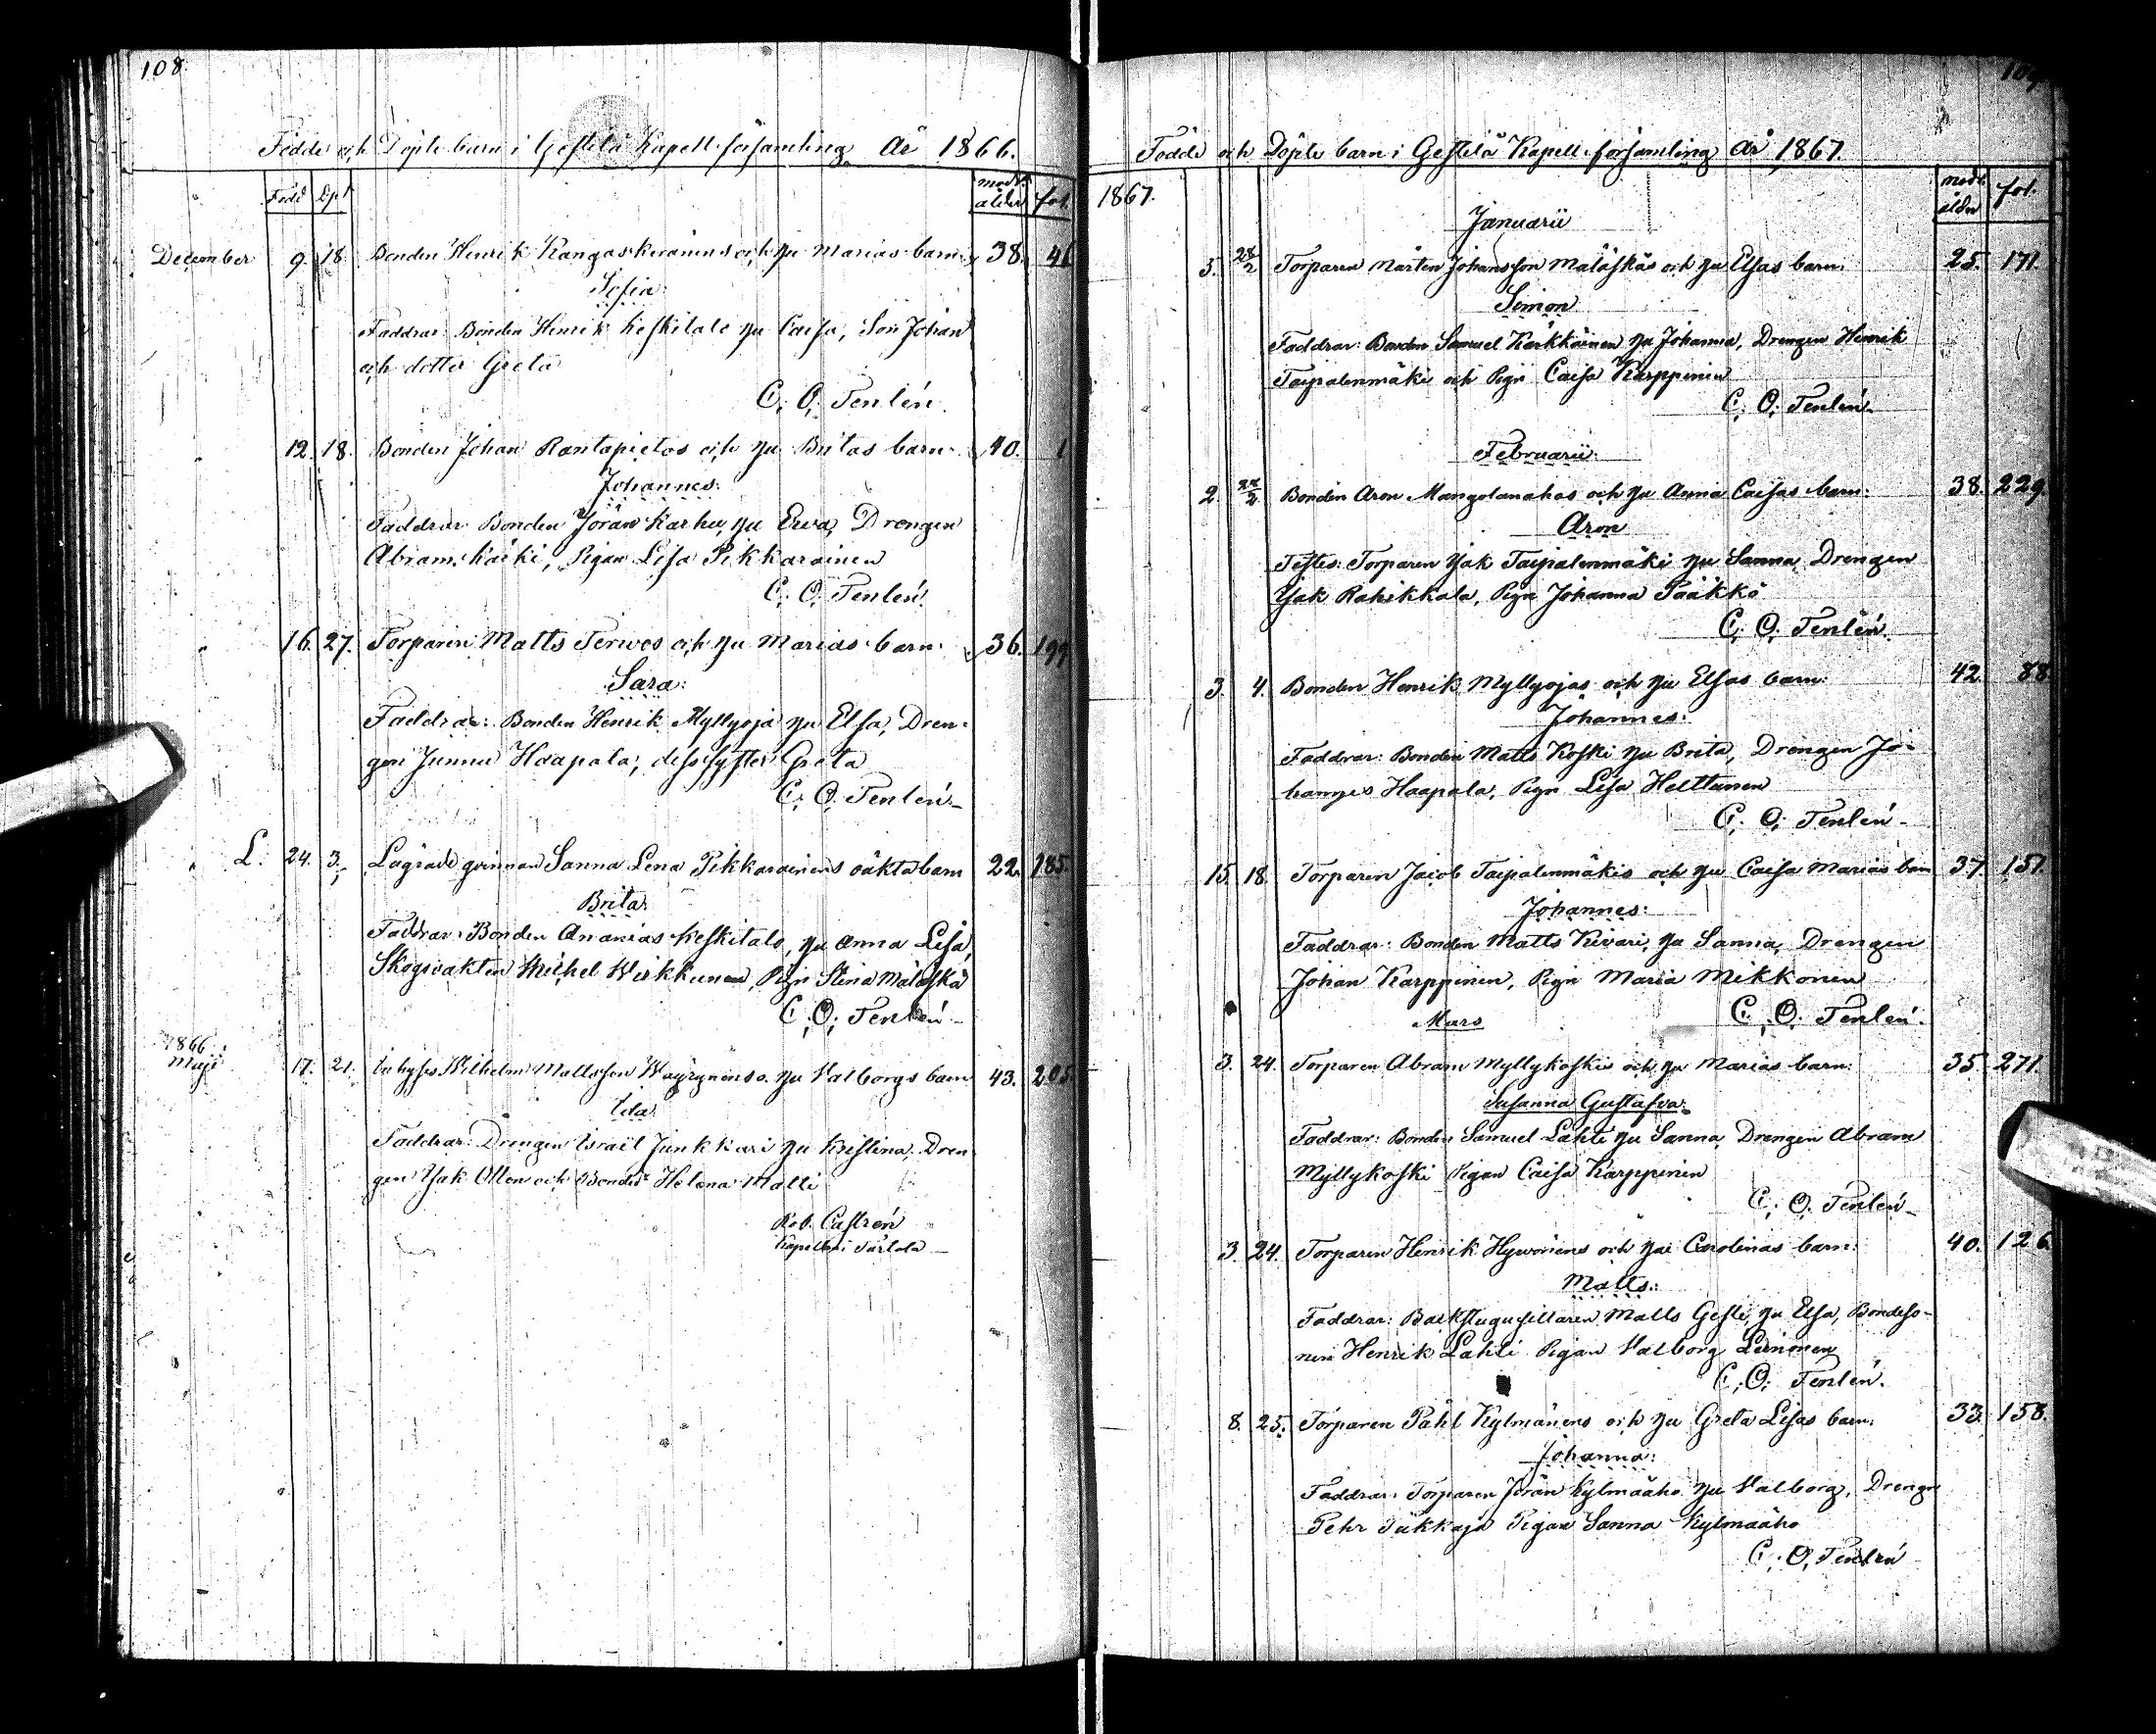 108
Födde och Döpte barn i Gestilä Kapell församling År 1866.
Född Dpt modr. ålder fol.
December 9. 18. Bonden Henrik Kangaskeränens och hu Marias barn: 38. 46
Sofia:
Faddrar: Bonden Henrik Keskitalo hu Caisa, Son Johan
och dotter Greta
C. O. Tenlén.
12. 18. Bonden Johan Rantapietos och hu Britas barn: 40. 1
Johannes:
Faddrar Bonden Jöran Karhu, hu Ewa, Drengen
Abram Kaiki, Pigan Lisa Pikkarainen
C. O. Tenlén.
16. 27. Torparen Matts Terwos och hu Marias barn: 36. 199
Sara:
Faddrar: Bonden Henrik Myllyoja hu Elsa, Dren-
gen Junnu Haapala, dess syster Greta
C. O. Tenlén
L. 24. 3. Lägrade qvinnan Sanna Lena Pikkarainens oäkta barn 22. 185.
Brita:
Faddrar: Bonden Ananias Keskitalo, hu Anna Lisa,
Skogsvakten Michel Wirkkunen, Pign Stina Mäläskä
C. O. Tenlén
1866
Maji 17. 21. Inhyses Wilhelm Mattsson Wäyrynens o. hu Walborgs barn 43. 205
Ida
Faddrar: Drengen Israel Junkkari hu Kristina, Dren
gen Isak Ollen och Helena Malli
Rob. Castrén
109.
Födde och Döpte barn i Gestilä Kapell församling År 1867.
1867. modr. ålder fol.
Januarii
5. 28/2 Torparen Mårten Johansson Mäläskäs och hu Elsas barn: 25. 171.
Simon
Faddrar: Bonden Samuel Kärkkäinen hu Johanna, Drengen Henrik
Taipalenmäki och Pign Caisa Karppinen
C. O. Tenlén
Februarii:
2. 22/2 Bonden Aron Mangolanahos och hu Anna Caisas barn: 38. 229
Aron
Testes: Torparen Isak Taipalenmäki hu Sanna Drengen
Isak Rahikkala, Pign Johanna Pääkkö
C. O. Tenlén.
3. 4. Bonden Henrik Myllyojas och hu Elsas barn: 42. 88
Johannes:
Faddrar: Bonden Matts Koski hu Brita, Drengen Jo-
hannes Haapala, Pign Lisa Helttunen
C. O. Tenlén
15. 18. Torparen Jacob Taipalenmäkis och hu Caisa Marias barn 37. 151.
Johannes:
Faddrar: Bonden Matts Kivari, hu Sanna, Drengen
Johan Karppinen, Pign Maria Mikkonen
C. O. Tenlén.
Mars
3. 24. Torparen Abram Myllykoskis och hu Marias barn: 35. 271.
Susanna Gustafva
Faddrar: Bonden Samuel Lahti hu Sanna Drengen Abram
Myllykoski Pigan Caisa Karppinen
C. O. Tenlén
3. 24. Torparen Henrik Hywönens och hu Carolinas barn: 40. 126.
Matts:
Faddrar: Backstugusittaren Matts Gestil, hu Elsa, Bondeso-
nen Henrik Lahti Pigan Walborg Leinonen
C. O. Tenlén.
8. 25. Torparen Påhl Kylmänens och hu Greta Lisas barn: 33. 158.
Johanna:
Faddrar: Torparen Jöran Kylmäaho hu Walborg, Drengen
Pehr Pigan Sanna Kylmäaho
C. O. Tenlén